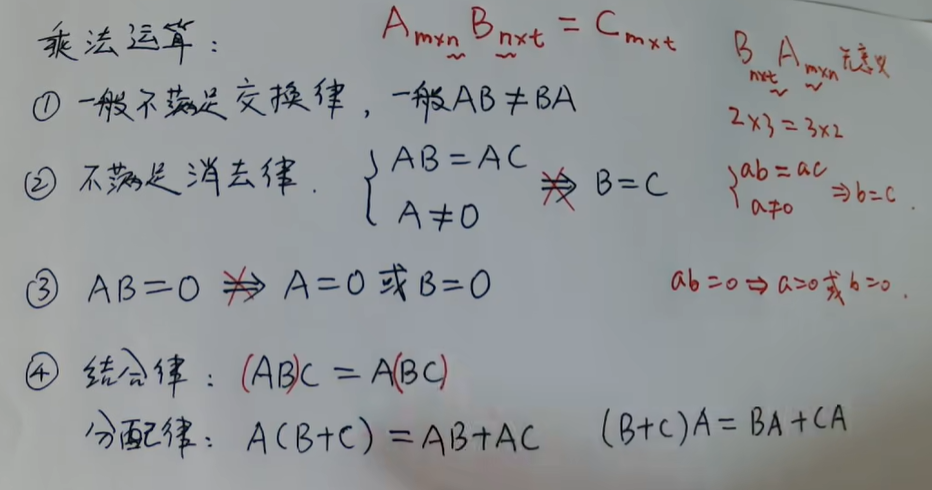 乘法运算： Aₘₓₙ Bₙₓₜ = Cₘₓₜ
Bₙₓₜ Aₘₓₙ 无意义
① 一般不满足交换律，一般AB≠BA
2×3=3×2
② 不满足消去律. { AB=AC A≠0 ⇏ B=C
{ ab=ac a≠0 ⇒b=c.
③ AB=0 ⇏ A=0 或 B=0
ab=0⇒a=0或b=0.
④ 结合律：(AB)C = A(BC)
分配律：A(B+C)=AB+AC (B+C)A=BA+CA